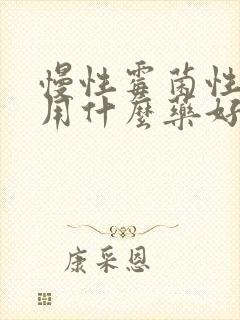 慢性霉菌性
用什麼藥好
康采恩